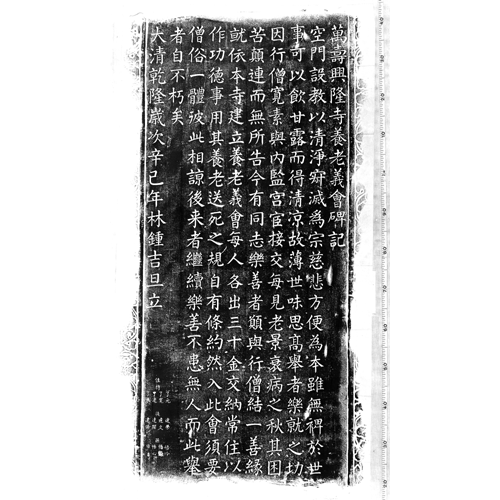 萬壽興隆寺養老義會碑記
空門設教以清淨寂滅為宗慈悲方便為本雖無裨於世
事可以飲甘露而得清凉故薄世味思高舉者樂就之切
因行僧寬素與內監宮宦接交每見老景衰病之秋其困
苦顛連而無所告今有同志樂善者願與行僧結一善緣
就依本寺建立養老義會每人各出三十金交納常住以
作功德事用其養老送死之規自有條約然入此會須要
僧俗一體彼此相諒後来者繼續樂善不患無人而此舉
者自不朽矣
大清乾隆歲次辛巳年林鍾吉旦立